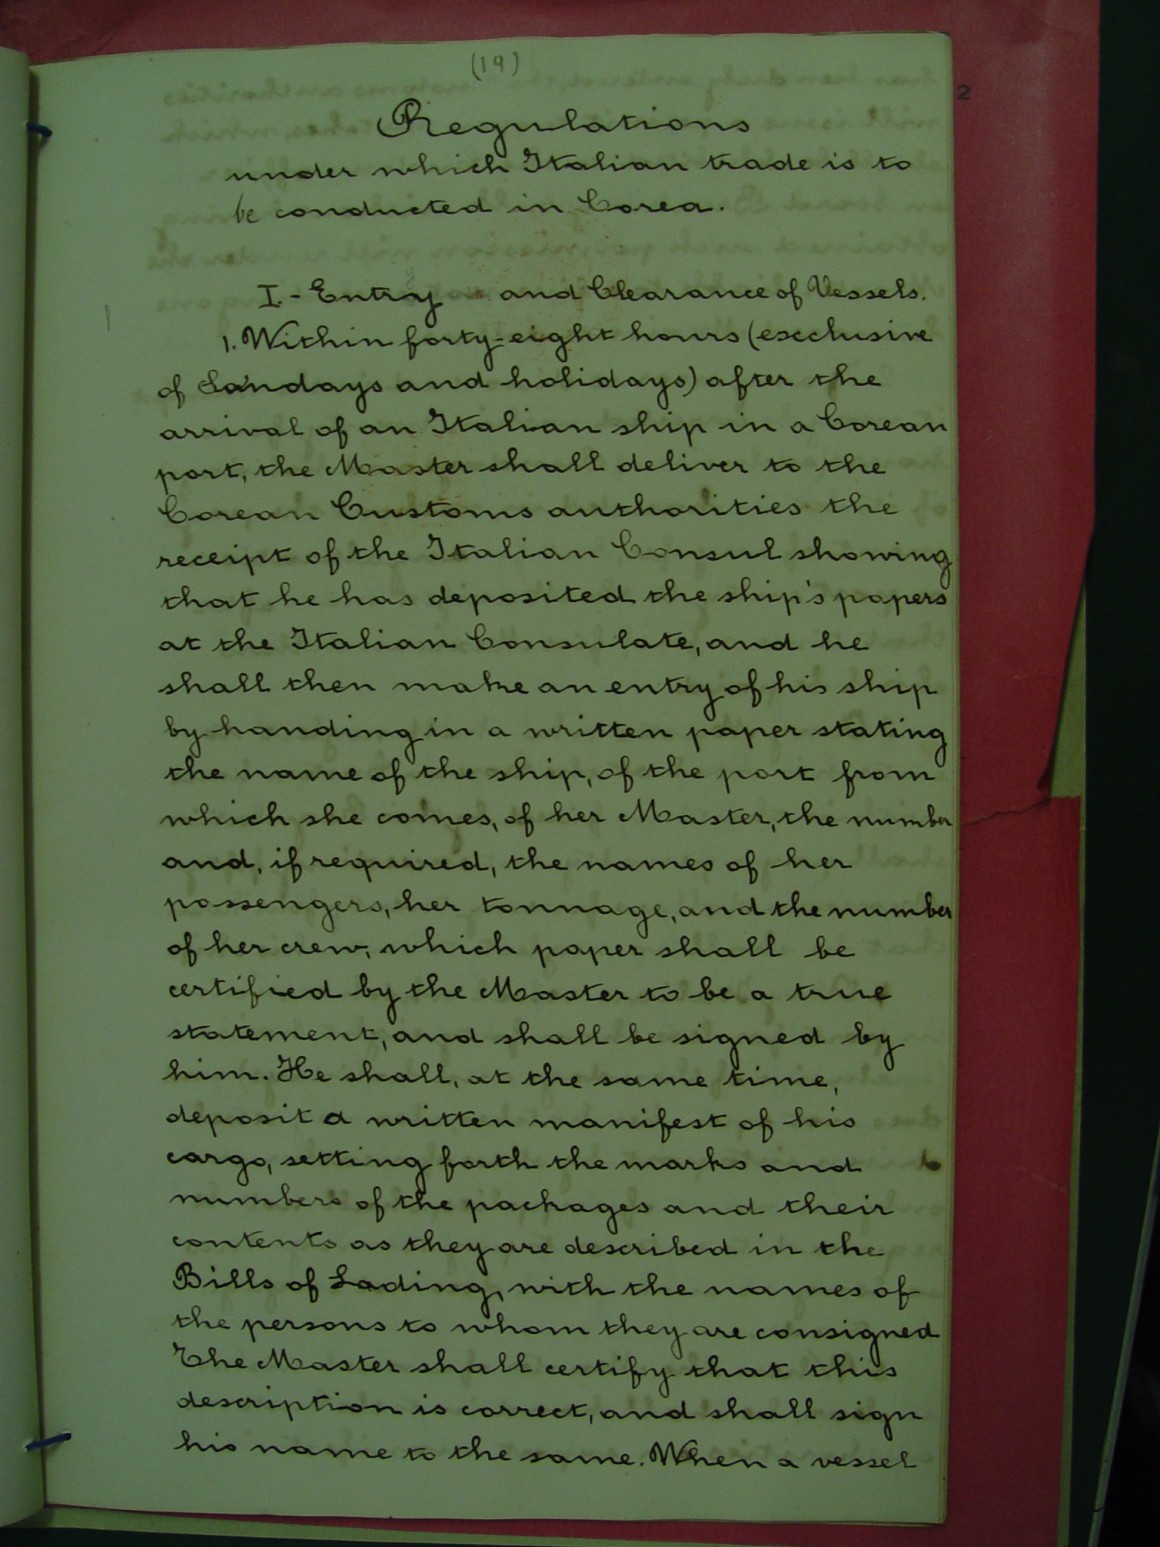 (19)
Regulations
under which Italian trade is to
be conducted in Corea.
I. - Entry and Clearance of Vessels.
1. Within forty-eight hours (exclusive
of Sundays and holidays) after the
arrival of an Italian ship in a Corean
port, the Master shall deliver to the
Corean Customs authorities the
receipt of the Italian Consul showing
that he has deposited the ship's papers
at the Italian Consulate, and he
shall then make an entry of his ship
by handing in a written paper stating
the name of the ship, of the port from
which she comes, of her Master, the number
and, if required, the names of her
passengers, her tonnage, and the number
of her crew, which paper shall be
certified by the Master to be a true
statement, and shall be signed by
him. He shall, at the same time,
deposit a written manifest of his
cargo, setting forth the marks and
numbers of the packages and their
contents as they are described in the
Bills of Lading, with the names of
the persons to whom they are consigned
The Master shall certify that this
description is correct, and shall sign
his name to the same. When a vessel
2